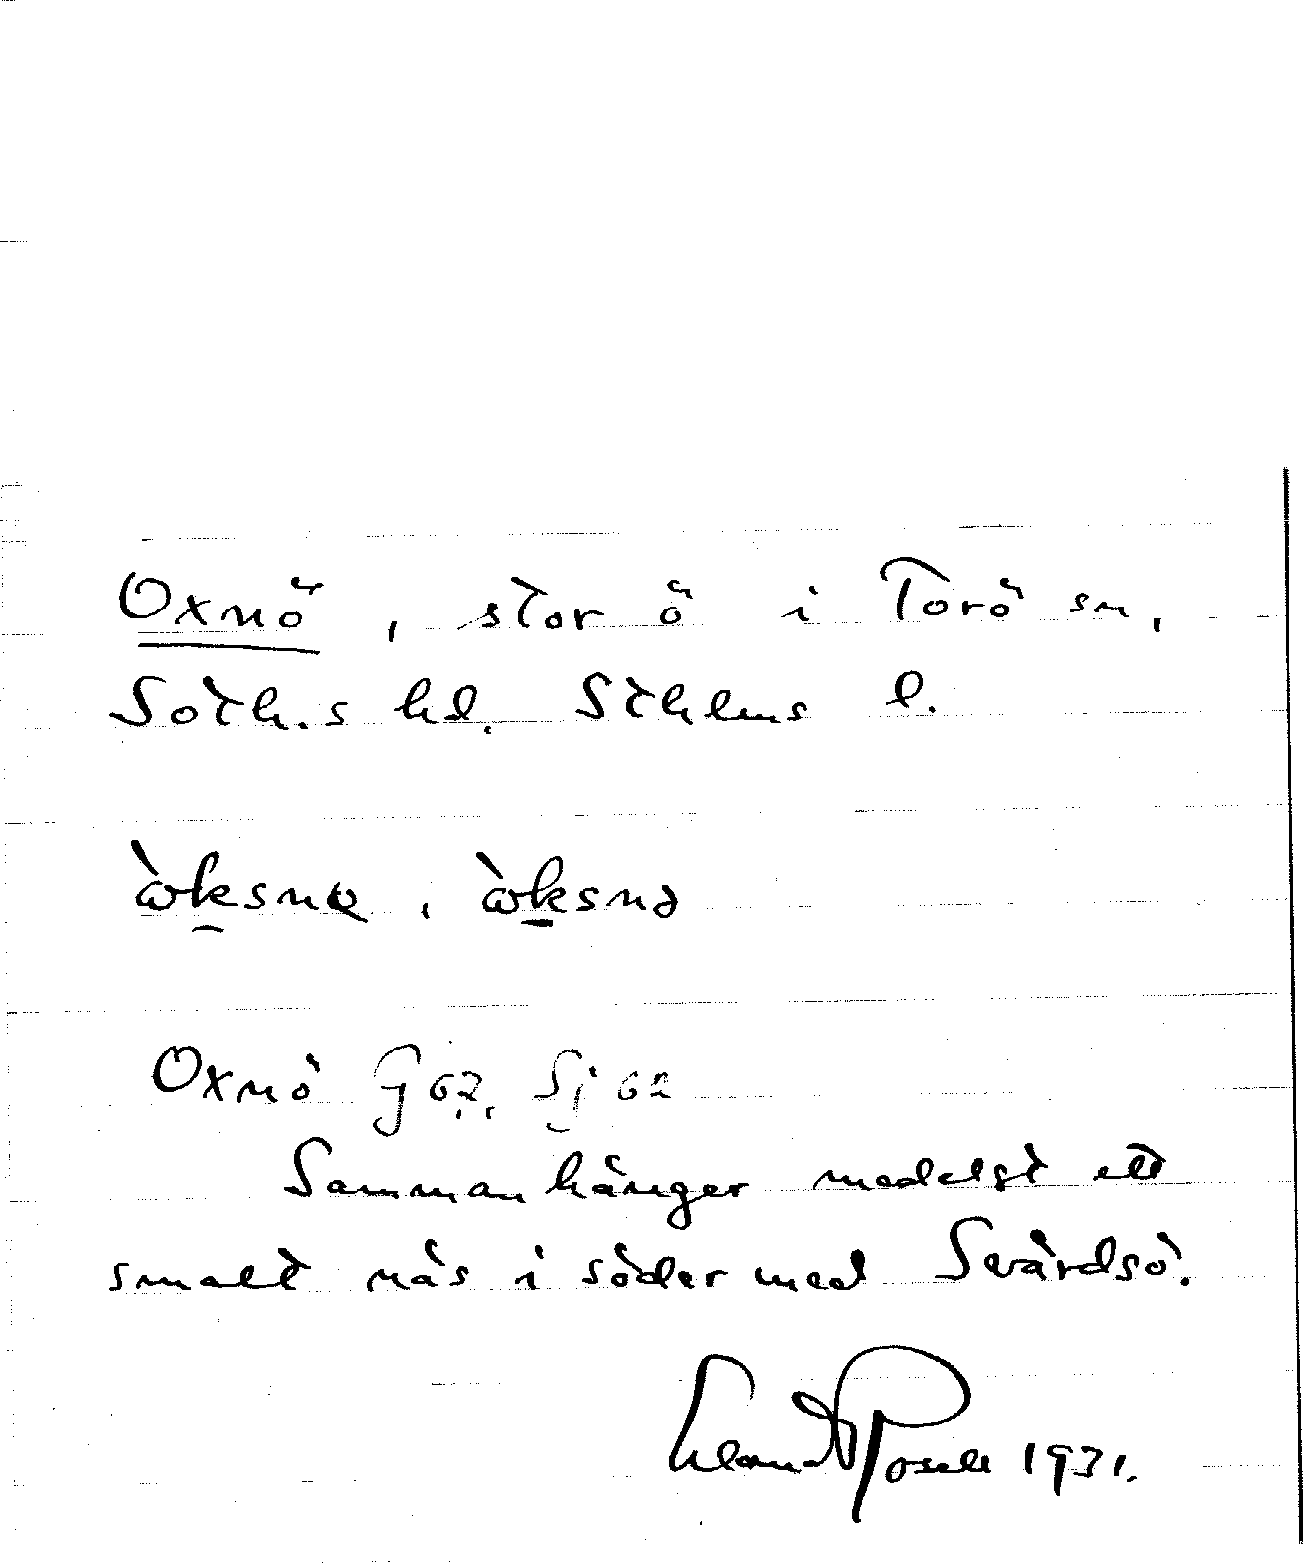 Oxnö, stor ö i Torö sn,
Soth.s hd. Sthlms l.
Oxnö G 67, Sj 62
Sammanhänger medelst ett
smalt näs i söder med Svärdsö.
1931.